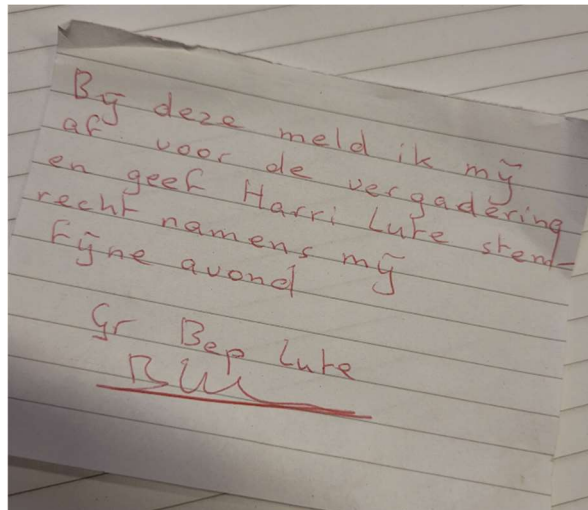 Bÿ deze meld ik mÿ
af voor de vergadering
en geef Harri Lute stem-
recht namens mÿ
Fÿne avond
Gr Bep Lute